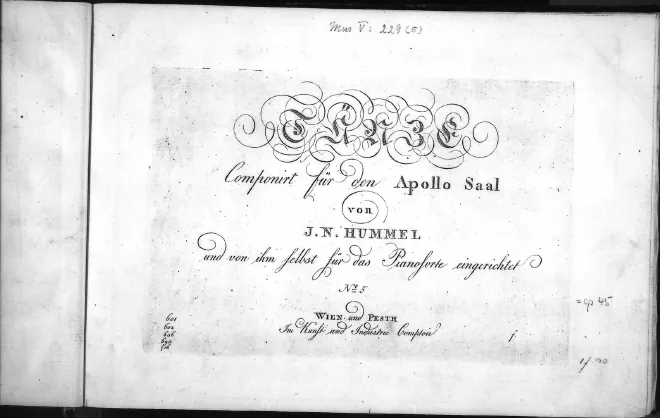 Mus V: 229 (5)
TÄNZE
Componirt für den Apollo Saal
von
J. N. HUMMEL
und von ihm selbst für das Pianoforte eingerichtet
No. 5
WIEN und PESTH
Im Kunst und Industrie Comptoir
f.
= op 45
601